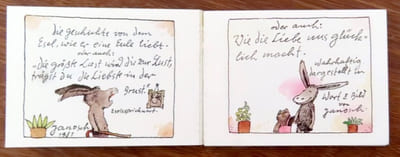 Die Geschichte von dem
Esel, wie er eine Eule liebt.
oder auch:
Die größte Last wird dir zur Lust,
trägst Du die Liebste in der
Brust!
Janosch
oder auch:
Wie die Liebe uns glück-
lich macht.
Wahrhaftig
dargestellt in
Wort & Bild
von
Janosch